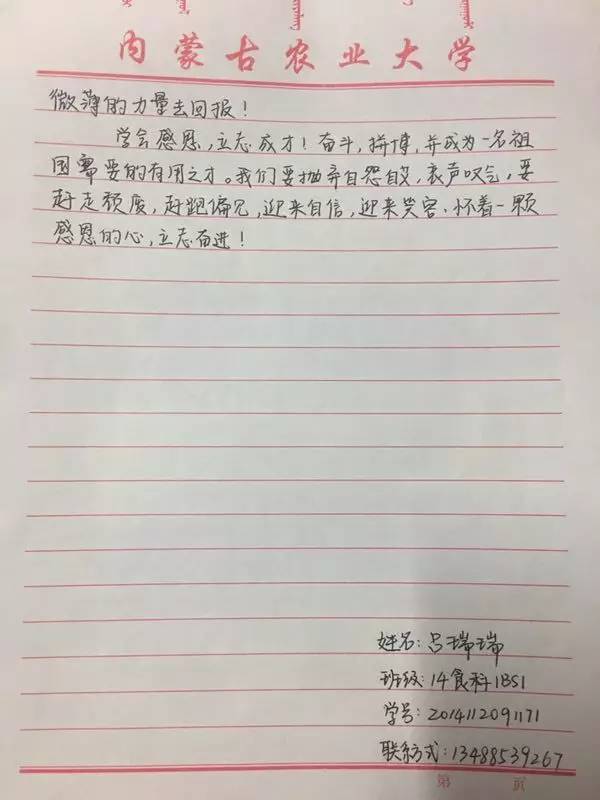 内蒙古农业大学
微薄的力量去回报！
学会感恩，立志成才！奋斗，拼博，并成为一名祖
国需要的有用之才。我们要抛弃自怨自艾，哀声叹气，要
赶走颓废，赶跑偏见，迎来自信，迎来笑容、怀着一颗
感恩的心，立志奋进！
姓名：吕瑞瑞
班级：14食科1BS1
学号：2014112091171
联系方式：13488539267
第 页